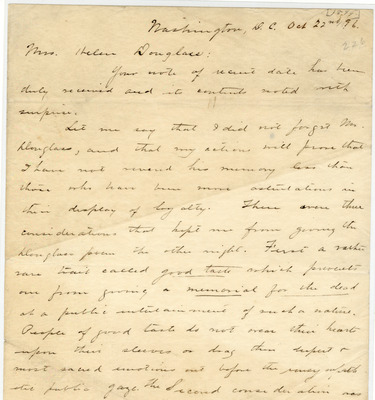 Washington, D.C. Oct 22nd 96.
Mrs. Helen Douglass:
Your note of recent date has been
duly received and its contents noted with
surprise.
Let me say that I did not forget Mr.
Douglass, and that my actions will prove that
I have not revered his memory less than
those who have been more ostentatious in
their display of loyalty. There were three
considerations that kept me from giving the
Douglass poem the other night. First a rather
rare trait called good taste which prevents
one from giving a memorial for the dead
at a public entertainment of such a nature.
People of good taste do not wear their hearts
upon their sleeves or drag their deepest &
most sacred emotions out before the
the public gaze. The Second consideration was